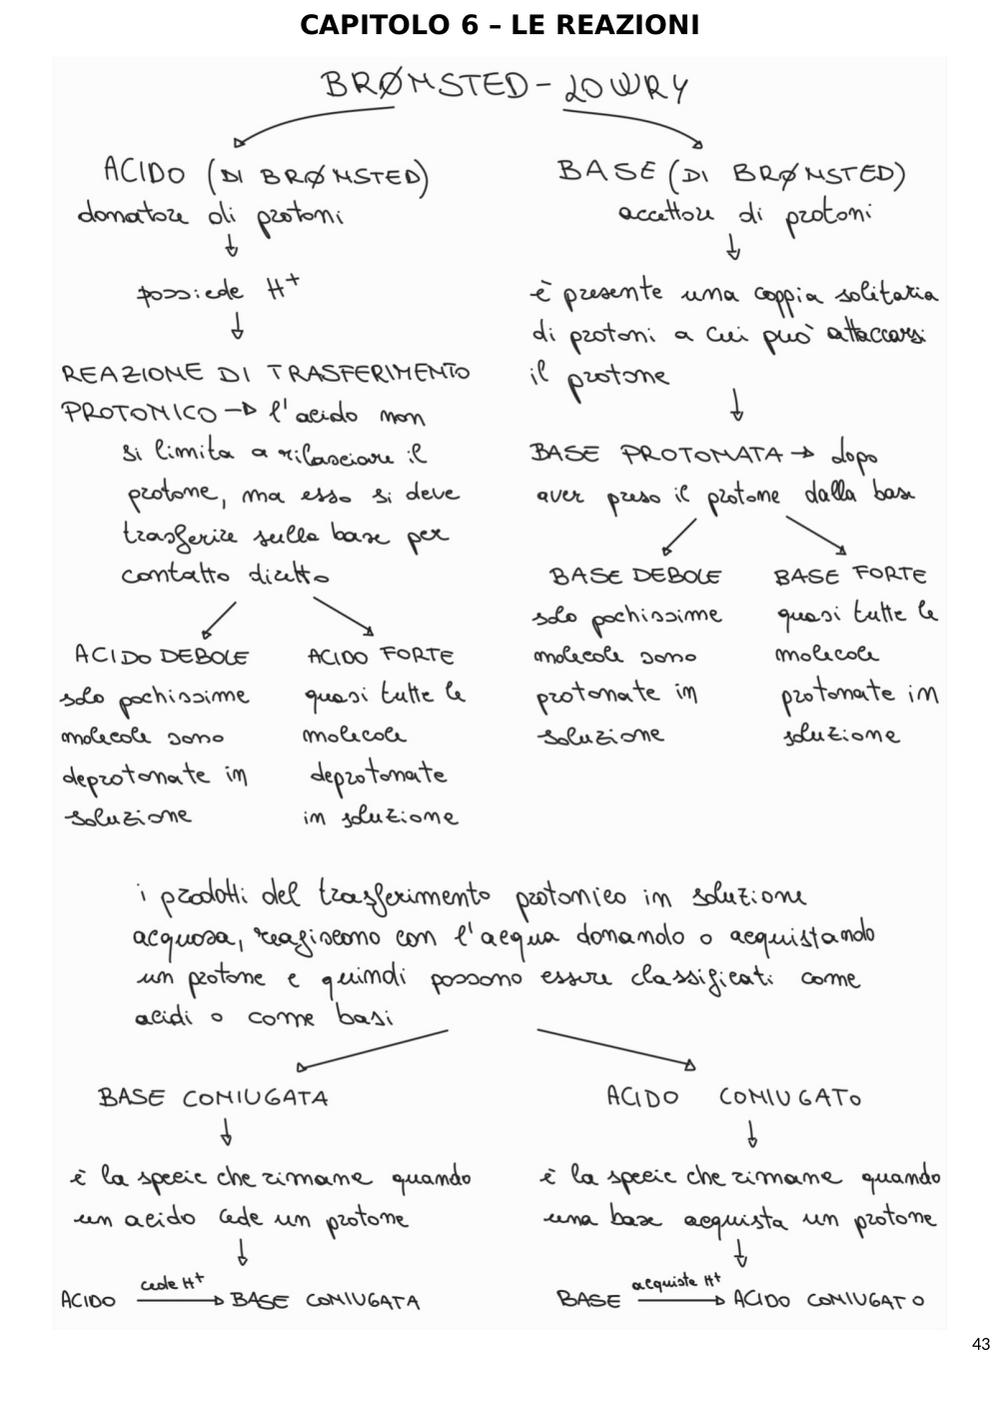 CAPITOLO 6 – LE REAZIONI
BRØNSTED - LOWRY
ACIDO (DI BRØNSTED)
donatore di protoni
possiede H+
REAZIONE DI TRASFERIMENTO
PROTONICO → l'acido non
si limita a rilasciare il
protone, ma esso si deve
trasferire sulla base per
contatto diretto
ACIDO DEBOLE
solo pochissime
molecole sono
deprotonate in
soluzione
ACIDO FORTE
quasi tutte le
molecole
deprotonate
in soluzione
BASE (DI BRØNSTED)
accettore di protoni
è presente una coppia solitaria
di protoni a cui può attaccarsi
il protone
BASE PROTONATA → dopo
aver preso il protone dalla base
BASE DEBOLE
solo pochissime
molecole sono
protonate in
soluzione
BASE FORTE
quasi tutte le
molecole
protonate in
soluzione
i prodotti del trasferimento protonico in soluzione
acquosa, reagiscono con l'acqua donando o acquistando
un protone e quindi possono essere classificati come
acidi o come basi
BASE CONIUGATA
è la specie che rimane quando
un acido cede un protone
cede H+
ACIDO → BASE CONIUGATA
ACIDO CONIUGATO
è la specie che rimane quando
una base acquista un protone
acquista H+
BASE → ACIDO CONIUGATO
43